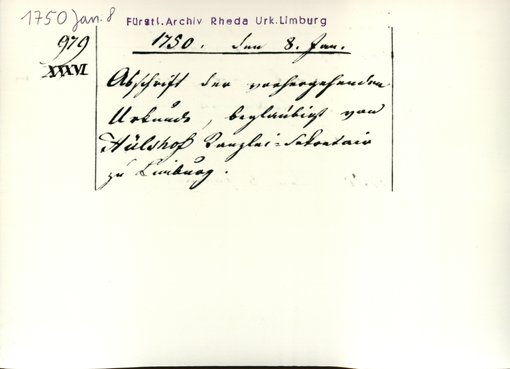 1750 Jan. 8
Fürstl. Archiv Rheda Urk. Limburg
979
XXXVI
1750. den 8. Jan.
Abschrift der vorhergehenden
Urkunde, beglaubigt von
Hülshof Kanzlei-Sekretair
zu Limburg.